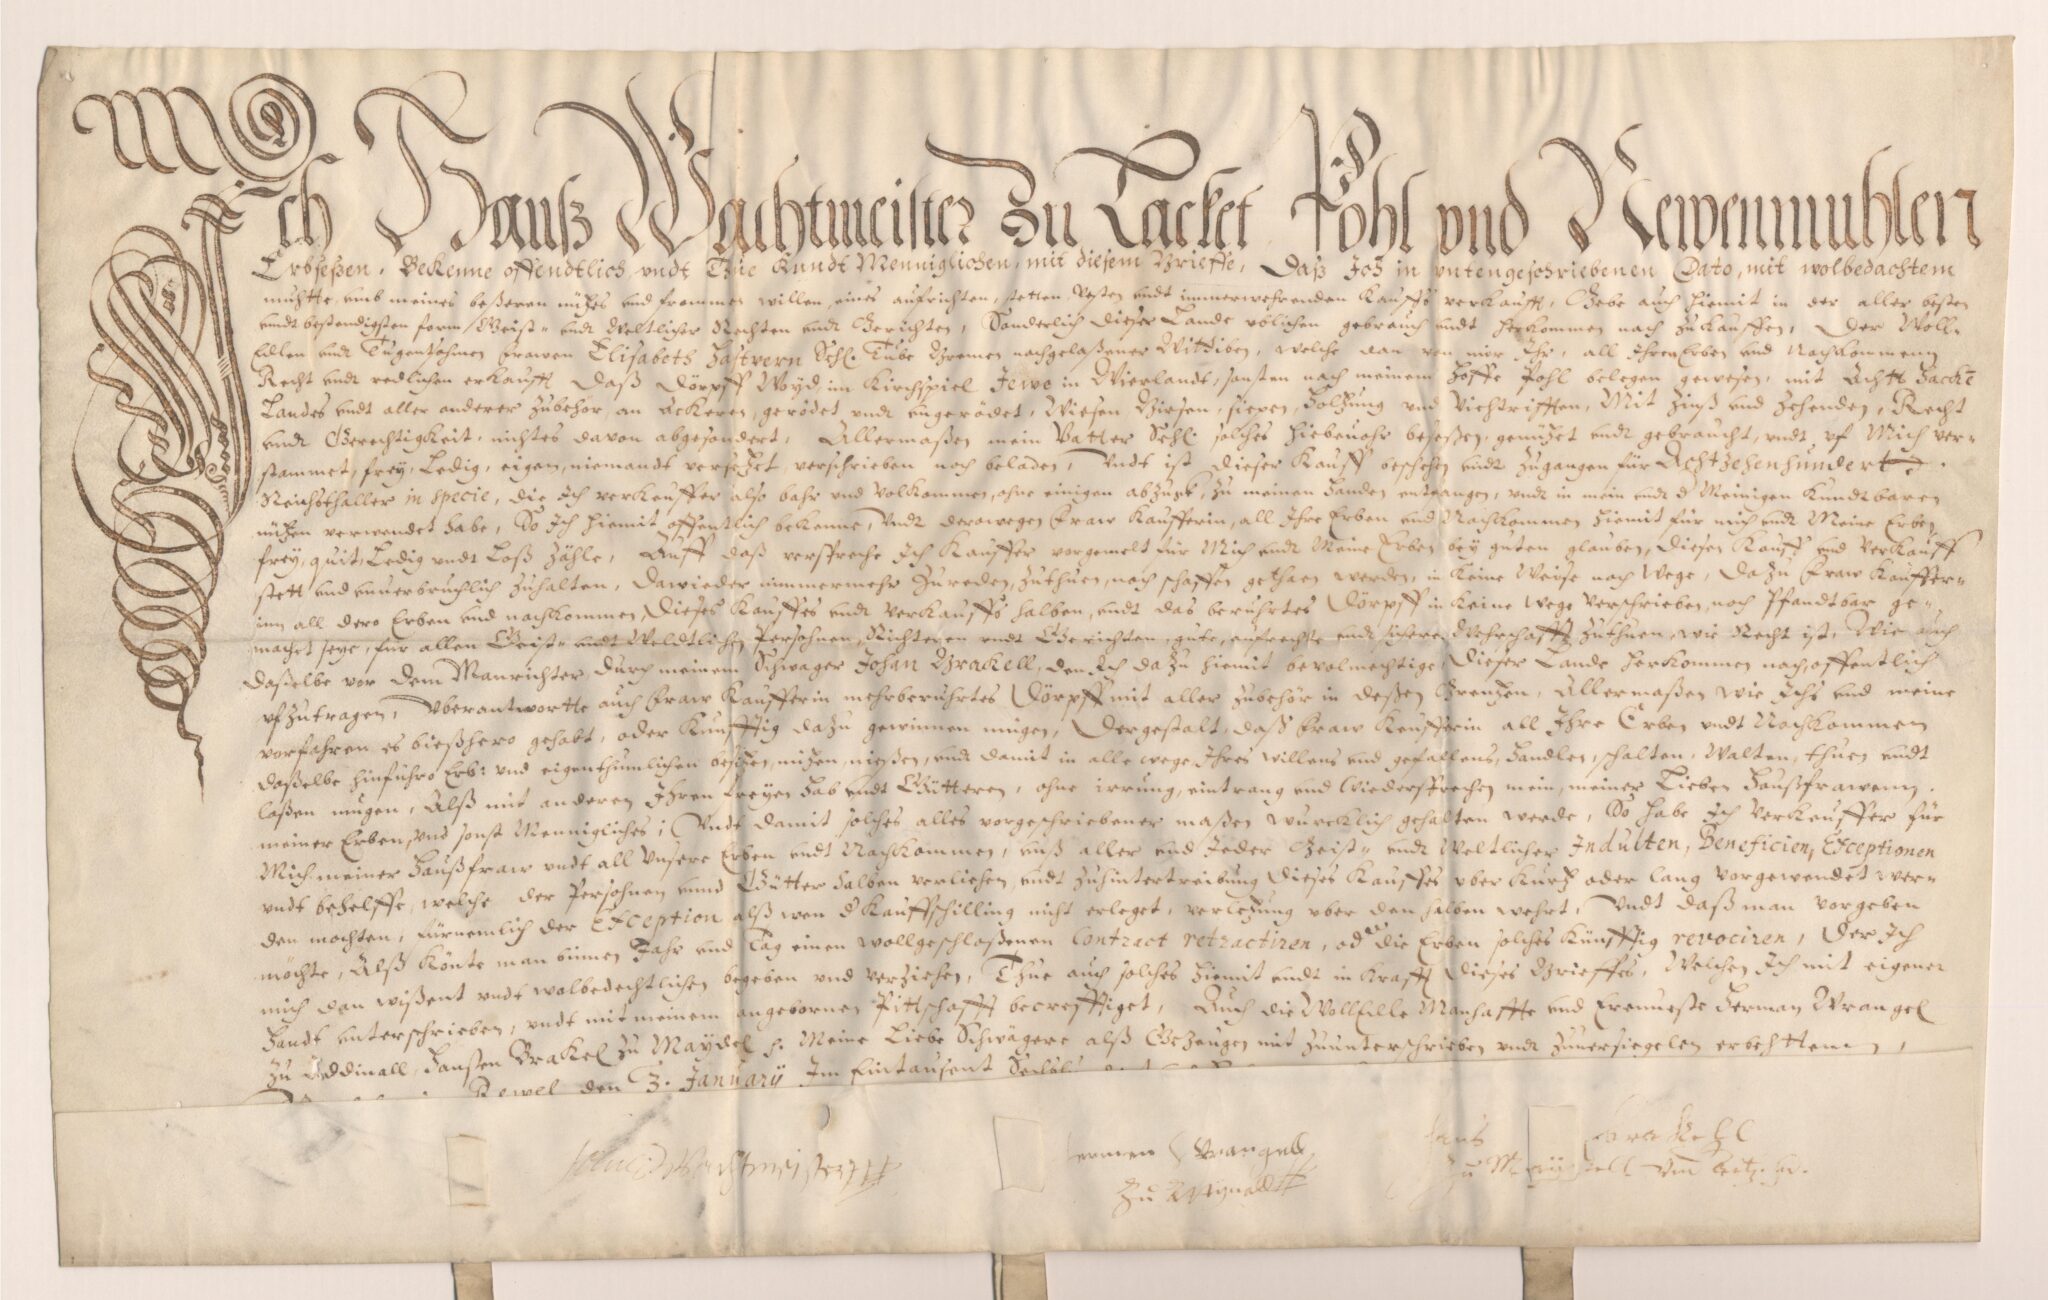 Ich Hanß Wachtmeister Zu Lacket Pöhl vnd Newenmuhlen
Erbseßen, Bekenne offendtlich vndt Thue Kundt Menniglichen, mit diesem Brieffe, Daß Ich in vntengeschriebenen Dato, mit wolbedachtem
muhtte, vmb meines beßeren nützes vnd frommen willen, eines aufrichten, stetten, Vesten vndt immerwehrenden Kauffs verkaufft, Gebe auch hiemit in der aller besten
vndt bestendigsten form Geist= vndt Weltlicher Rechten vndt Gerichten, Sonderlich dieser Lande völichen gebrauch vndt herkommen nach zukauffen, Der Woll=
Edlen vndt Tugentsahmen Frawen Elisabeth Hastvern Sehl. Tube Bremen nachgelaßener Wittiben, welche dan von mir Ihr, all Ihren Erben vnd Nachkommenn
Recht vndt redlichen erkaufft Daß Dörpff Woyd im Kirchspiel Jewe in Wierlandt, sonsten nach meinem Hoffe Pohl belegen gewesen, mit Achtt Hacke
Landes vndt aller anderer zubehör, an Ackeren, gerödet vndt vngerödet, Wiesen Wiesen, siepen, Holtzung vnd Viehtrifften, Mit Zinß vnd Zehenden, Recht
vndt Gerechtigkeit, nichtes davon abgesondert, Allermaßen mein Vatter Sehl. solches hiebeuohr beseßen, genützet vndt gebraucht, vndt vf Mich ver=
stammet, frey, Ledig, eigen, niemandt versetzet, verschrieben noch beladen, Vndt ist dieser Kauff beschehen vndt zugangen für Achtzehenhundert
Reichsthaller in specie, die Ich verkeuffer also bahr vnd Volkommen, ohne einigen abzugk, zu meinen Handen entfangen, vndt in mein vndt d Meinigen Kundtbaren
nützen verwendet habe, So Ich hiemit offentlich bekenne, Vndt derowegen Fraw Käufferin, all Ihre Erben vnd Nachkommen hiemit für mich vndt Meine Erben
frey, quit, Ledig vndt Loß zähle, Auff daß verspreche Ich Kauffer vorgemelt für Mich vndt Meine Erben bey guten glauben, diesen Kauff vnd Verkauff
stett vnd vnuerbruchlich zuhalten, dawieder nimmermehr zureden, zuthuen, noch schaffen gethaen werden, in keine Weise noch Wege, Dazu Fraw Käuffer=
inn all dero Erben vnd nachkommen, dieses Kauffes vndt Verkauffs halben, vndt das beruhrtes Dörpff in keine wege Verschrieben, noch Pfandtbar ge=
machet seye, für allen Geist= vndt Weldtlichen Persohnen, Richteren vndt Gerichten, gute, aufrechte vndt sichere Wehrschafft zuthuen, wie Recht ist, Wie auch
daßelbe vor dem Manrichter durch meinem Schwager Johan Brackell, den Ich dazu hiemit bevolmechtige, dieser Lande herkommen nach, offentlich
vfzutragen, Vberantwortte auch Fraw Kaufferin mehrberührtes Dörpff mit aller zubehör in deßen Grentzen, Allermaßen wie Ichs vnd meine
vorfahren es bießhero gehabt, oder Kunfftig dazu gewinnen mugen, Dergestalt, daß Fraw Keufferin all Ihre Erben vndt Nachkommen
daßelbe hinführo Erb: vnd eigenthumlichen besitzen, nützen, nießen, vndt damit in alle wege Ihres willens vnd gefallens, handlen, schalten, Walten, thuen vndt
laßen mugen, Alß mit anderen Ihren freyen Hab vndt Gütteren, ohne irrung, eintrang vnd Wiedersprechen mein, meiner Lieben Haußfrawenn,
meiner Erben, vnd sonst Mennigliches; Vndt damit solches alles vorgeschriebener maßen wurcklich gehalten werde, So habe Ich Verkeuffer für
Mich meiner Haußfraw vndt all Vnsere Erben vndt Nachkommen, vnß aller vnd Jeder Geist= vndt Weltlicher Indulten, Beneficien, Exceptionen
vndt behelffe, welche der Persohnen vnnd Gütter halben verliehen, vndt zuhintertreibung dieses Kauffes vber kurtz oder lang vorgewendet wer=
den mochten, fürnemlich der Exception alß wen d Kauffschilling nicht erleget, verletzung vber den halben wehrt, Vndt daß man vorgeben
möchte, Alß könte man binnen Jahr vnd Tag einen wollgeschloßenen Contract retractiren, od die Erben solches künfftig revociren, Der Ich
mich dan wißent vndt wolbedechtlichen begeben vnd verziehen, Thue auch solches hiemit vndt in krafft dieses Brieffes, Welchen Ich mit eigener
Handt vnterschrieben, vndt mit meinem angebornen Pittschafft becrefftiget, Auch die WollEdle Manhaffte vnd Ernueste Herman Wrangel
Zu Addinall, Hanßen Brakel zu Maydel p. Meine Liebe Schwägere alß Gezeugen mit zuunterschrieben vndt zuuersiegelen erbehttenn,
Rewel den 3. January Im Eintausent
Hans Wachtmeister
Hermen Wrangell
Hans Brakehl
Zu Maydell